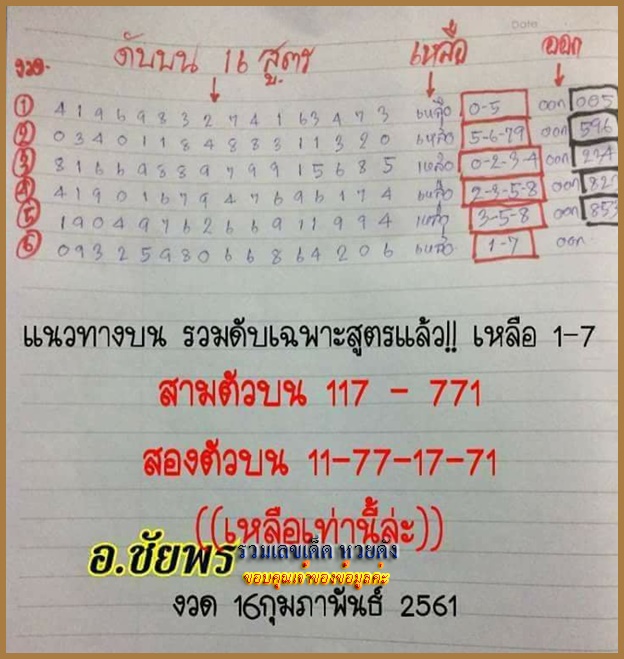 Date
งวด. ดับบน 16 สูตร เหลือ ออก
① 4 1 9 6 9 8 3 2 7 4 1 6 3 4 7 3 เหลือ 0-5 ออก 005
② 0 3 4 0 1 1 8 4 8 8 3 1 1 3 2 0 เหลือ 5-6-79 ออก 596
③ 8 1 6 6 9 8 8 9 7 9 9 1 5 6 8 5 เหลือ 0-2-3-4 ออก 234
④ 4 1 9 0 1 6 7 9 4 7 6 9 6 1 7 4 เหลือ 2-3-5-8 ออก
⑤ 1 9 0 4 9 7 6 2 6 6 9 1 1 9 9 4 เหลือ 3-5-8 ออก 853
⑥ 0 9 3 2 5 9 8 0 6 6 8 6 4 2 0 6 เหลือ 1-7 ออก
แนวทางบน รวมดับเฉพาะสูตรแล้ว!! เหลือ 1-7
สามตัวบน 117 - 771
สองตัวบน 11-77-17-71
((เหลือเท่านี้ล่ะ))
อ.ชัยพร รวมเลขเด็ด หวยดัง
ขอบคุณเจ้าของข้อมูลค่ะ
งวด 16กุมภาพันธ์ 2561